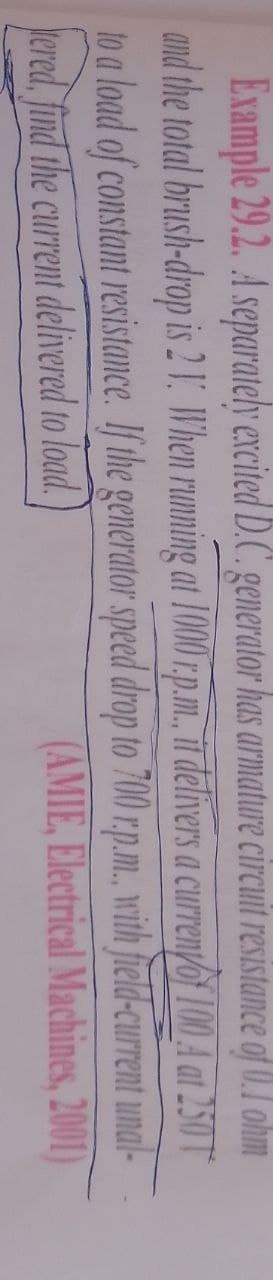 Example 29.2. A separately excited D.C. generator has armature circuit resistance of 0.1 ohm
and the total brush-drop is 2 V. When running at 1000 r.p.m., it delivers a current of 100 A at 250 V
to a load of constant resistance. If the generator speed drop to 700 r.p.m., with field-current unal-
tered, find the current delivered to load.
(AMIE, Electrical Machines, 2001)